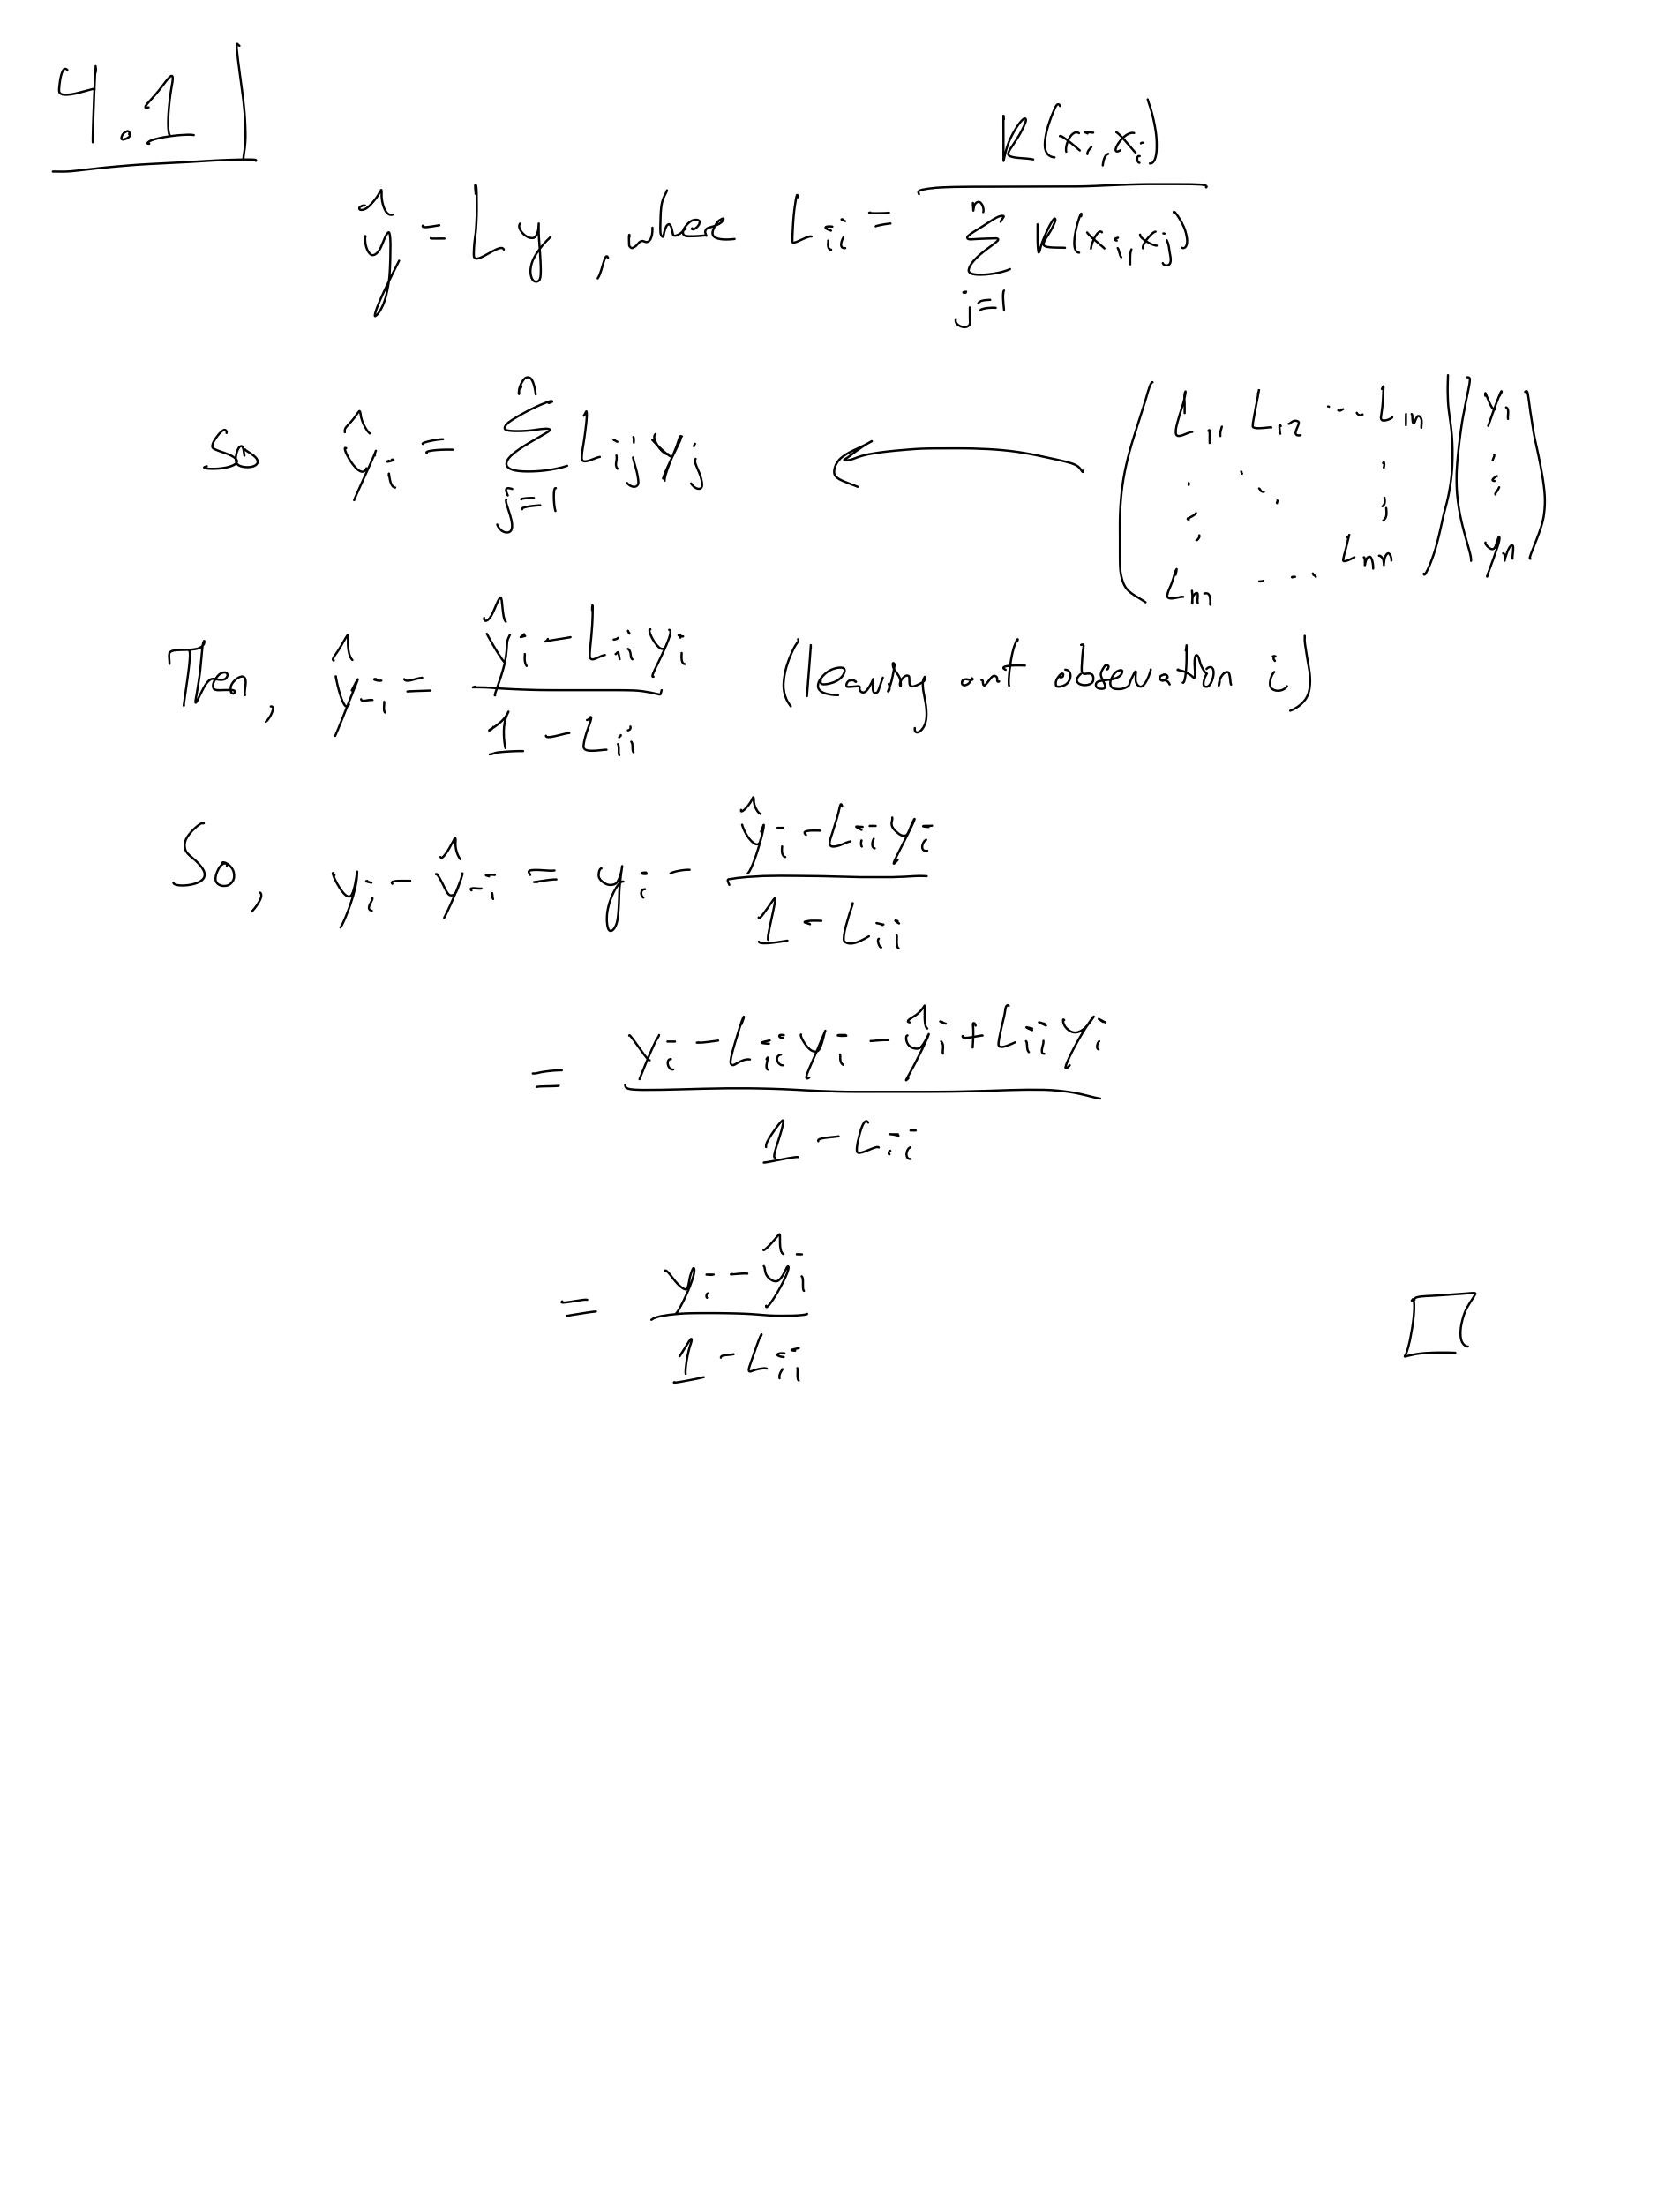 4.1
ŷ = Ly, where L_ii = K(x_i, x_i) / Σ_{j=1}^{n} K(x_i, x_j)
so ŷ_i = Σ_{j=1}^{n} L_ij y_j ← ( L_11 L_12 ... L_1n ⋮ ⋱ ⋮ L_n1 ... L_nn ) ( y_1 ⋮ y_n )
Then, ŷ_-i = (ŷ_i - L_ii y_i) / (1 - L_ii) (leaving out observation i)
So, y_i - ŷ_-i = y_i - (ŷ_i - L_ii y_i) / (1 - L_ii)
= (y_i - L_ii y_i - ŷ_i + L_ii y_i) / (1 - L_ii)
= (y_i - ŷ_i) / (1 - L_ii) □